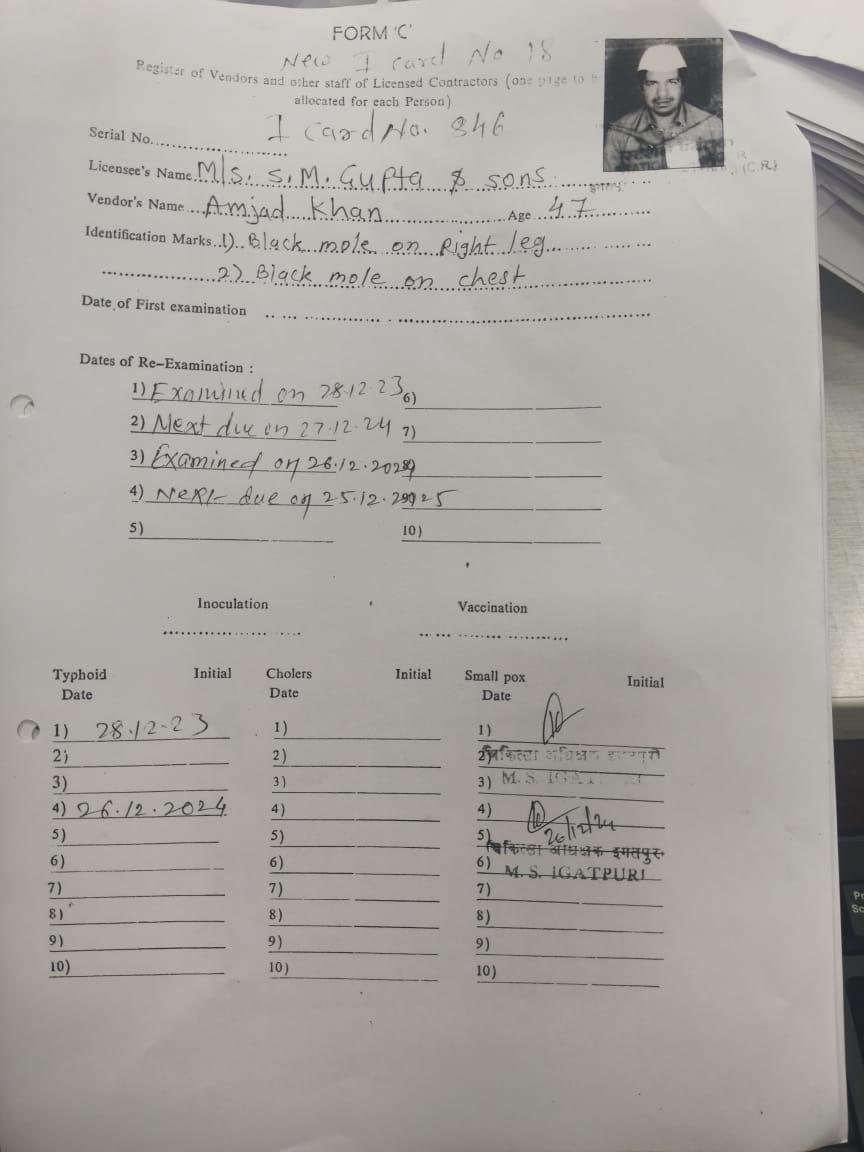 FORM 'C'
New I card No 18
Register of Vendors and other staff of Licensed Contractors (one page to
allocated for each Person)
I card No. 846
Serial No.
Licensee's Name M/s. S.M. Gupta & sons
(C.R)
Vendor's Name Amjad Khan Age 47
Identification Marks 1) Black mole on Right leg
2) Black mole on chest
Date of First examination
Dates of Re-Examination :
1) Examined on 28.12.23 6)
2) Next due on 27.12.24 7)
3) Examined on 26.12.2024
4) Next due on 25.12.2025
5) 10)
Inoculation Vaccination
Typhoid Initial Cholers Initial Small pox Initial
Date Date Date
1) 28.12-23 1) 1)
2) 2) 2) चिकित्सा अधिक्षक इगतपुरी
3) 3) 3) M. S. IGATPURI
4) 26.12.2024 4) 4)
5) 5) 5) 26/12/24
चिकित्सा अधिक्षक इगतपुरी
6) 6) 6) M. S. IGATPURI
7) 7) 7)
8) 8) 8)
9) 9) 9)
10) 10) 10)